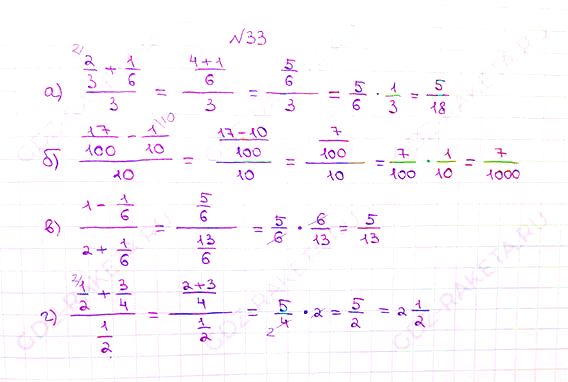 №33
а) (2/3 + 1/6)/3 = ((4+1)/6)/3 = (5/6)/3 = 5/6 · 1/3 = 5/18
б) (17/100 - 1/10)/10 = ((17-10)/100)/10 = (7/100)/10 = 7/100 · 1/10 = 7/1000
в) (1 - 1/6)/(2 + 1/6) = (5/6)/(13/6) = 5/6 · 6/13 = 5/13
г) (1/2 + 3/4)/(1/2) = ((2+3)/4)/(1/2) = 5/4 · 2 = 5/2 = 2 1/2
GDZ-RAKETA.RU